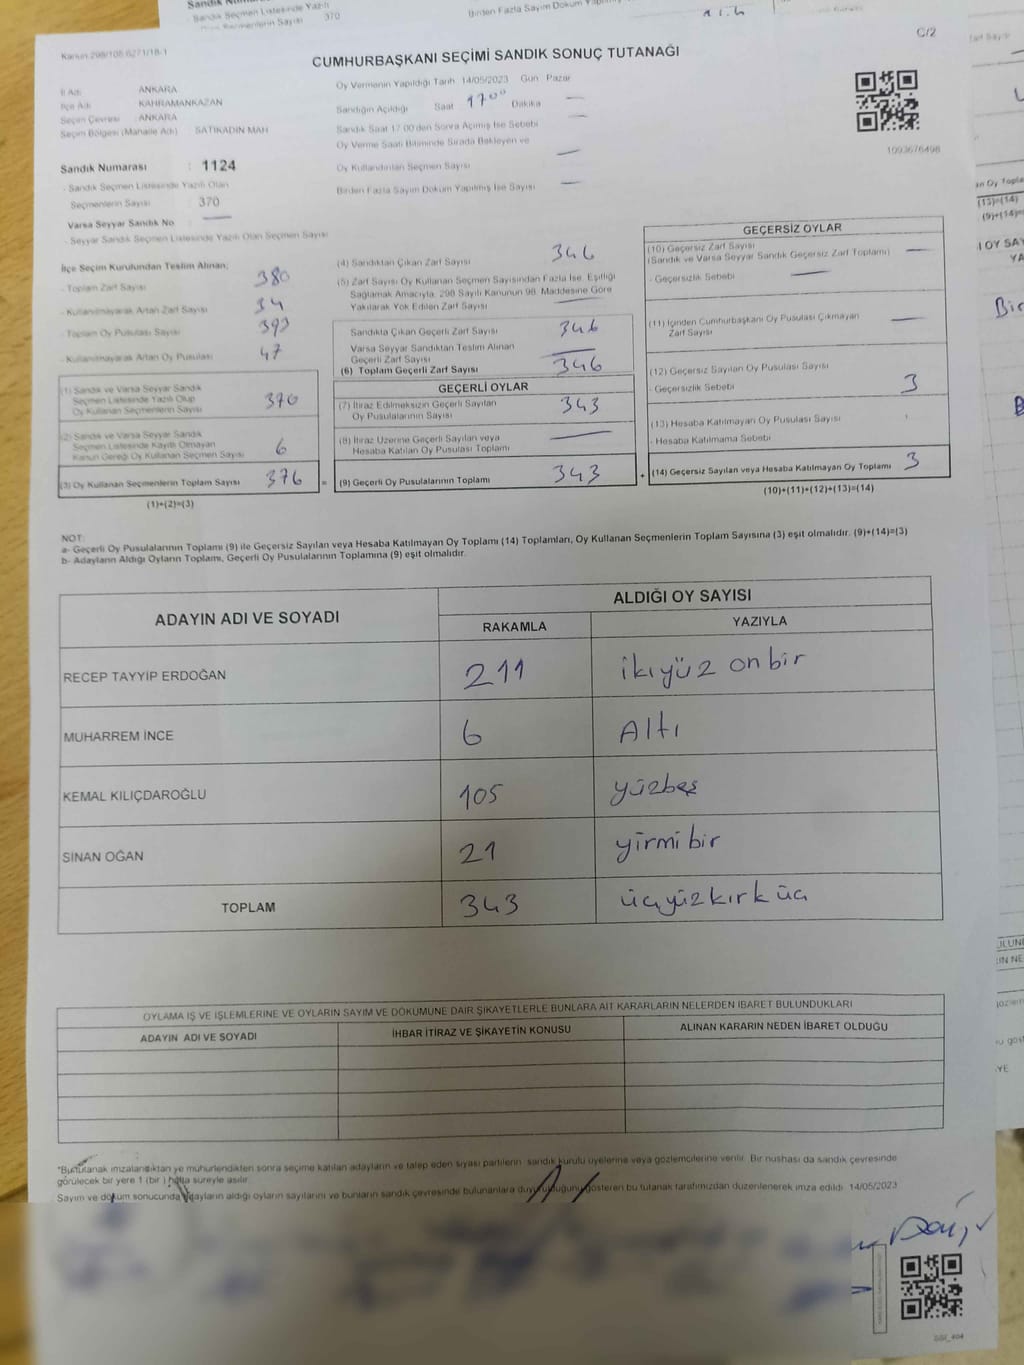 Sandık Seçmen Listesinde Yazılı
Seçmenlerin Sayısı 370
Birden Fazla Sayım Döküm
Kanun 298/105 6271/18-1
C/2
CUMHURBAŞKANI SEÇİMİ SANDIK SONUÇ TUTANAĞI
İl Adı ANKARA
İlçe Adı KAHRAMANKAZAN
Seçim Çevresi : ANKARA
Seçim Bölgesi (Mahalle Adı) SATIKADIN MAH
Oy Vermenin Yapıldığı Tarih 14/05/2023 Gün Pazar
Sandığın Açıldığı Saat 17 00 Dakika —
Sandık Saat 17 00'den Sonra Açılmış İse Sebebi —
Oy Verme Saati Bitiminde Sırada Bekleyen ve
Oy Kullandırılan Seçmen Sayısı —
Birden Fazla Sayım Döküm Yapılmış İse Sayısı —
1093676498
Sandık Numarası : 1124
- Sandık Seçmen Listesinde Yazılı Olan
Seçmenlerin Sayısı : 370
Varsa Seyyar Sandık No —
- Seyyar Sandık Seçmen Listesinde Yazılı Olan Seçmen Sayısı
İlçe Seçim Kurulundan Teslim Alınan;
- Toplam Zarf Sayısı 380
- Kullanılmayarak Artan Zarf Sayısı 34
- Toplam Oy Pusulası Sayısı 393
- Kullanılmayarak Artan Oy Pusulası 47
(1) Sandık ve Varsa Seyyar Sandık
Seçmen Listesinde Yazılı Olup
Oy Kullanan Seçmenlerin Sayısı 370
(2) Sandık ve Varsa Seyyar Sandık
Seçmen Listesinde Kayıtlı Olmayan
Kanun Gereği Oy Kullanan Seçmen Sayısı 6
(3) Oy Kullanan Seçmenlerin Toplam Sayısı 376 =
(1)+(2)=(3)
(4) Sandıktan Çıkan Zarf Sayısı 346
(5) Zarf Sayısı Oy Kullanan Seçmen Sayısından Fazla İse, Eşitliği
Sağlamak Amacıyla, 298 Sayılı Kanunun 98. Maddesine Göre
Yakılarak Yok Edilen Zarf Sayısı —
Sandıkta Çıkan Geçerli Zarf Sayısı 346
Varsa Seyyar Sandıktan Teslim Alınan
Geçerli Zarf Sayısı —
(6) Toplam Geçerli Zarf Sayısı 346
GEÇERLİ OYLAR
(7) İtiraz Edilmeksizin Geçerli Sayılan
Oy Pusulalarının Sayısı 343
(8) İtiraz Üzerine Geçerli Sayılan veya
Hesaba Katılan Oy Pusulası Toplamı —
(9) Geçerli Oy Pusulalarının Toplamı 343 +
GEÇERSİZ OYLAR
(10) Geçersiz Zarf Sayısı —
(Sandık ve Varsa Seyyar Sandık Geçersiz Zarf Toplamı)
- Geçersizlik Sebebi —
(11) İçinden Cumhurbaşkanı Oy Pusulası Çıkmayan
Zarf Sayısı —
(12) Geçersiz Sayılan Oy Pusulası Sayısı 3
- Geçersizlik Sebebi
(13) Hesaba Katılmayan Oy Pusulası Sayısı
- Hesaba Katılmama Sebebi
(14) Geçersiz Sayılan veya Hesaba Katılmayan Oy Toplamı 3
(10)+(11)+(12)+(13)=(14)
NOT:
a- Geçerli Oy Pusulalarının Toplamı (9) ile Geçersiz Sayılan veya Hesaba Katılmayan Oy Toplamı (14) Toplamları, Oy Kullanan Seçmenlerin Toplam Sayısına (3) eşit olmalıdır. (9)+(14)=(3)
b- Adayların Aldığı Oyların Toplamı, Geçerli Oy Pusulalarının Toplamına (9) eşit olmalıdır.
ADAYIN ADI VE SOYADI ALDIĞI OY SAYISI
RAKAMLA YAZIYLA
RECEP TAYYİP ERDOĞAN 211 ikiyüz on bir
MUHARREM İNCE 6 Altı
KEMAL KILIÇDAROĞLU 105 yüzbeş
SİNAN OĞAN 21 yirmi bir
TOPLAM 343 üçyüz kırk üç
OYLAMA İŞ VE İŞLEMLERİNE VE OYLARIN SAYIM VE DÖKÜMÜNE DAİR ŞİKAYETLERLE BUNLARA AİT KARARLARIN NELERDEN İBARET BULUNDUKLARI
ADAYIN ADI VE SOYADI İHBAR İTİRAZ VE ŞİKAYETİN KONUSU ALINAN KARARIN NEDEN İBARET OLDUĞU
*Bu tutanak imzalandıktan ve mühürlendikten sonra seçime katılan adayların ve talep eden siyasi partilerin sandık kurulu üyelerine veya gözlemcilerine verilir. Bir nüshası da sandık çevresinde
görülecek bir yere 1 (bir ) hafta süreyle asılır.
Sayım ve döküm sonucunda adayların aldığı oyların sayılarını ve bunların sandık çevresinde bulunanlara duyurulduğunu gösteren bu tutanak tarafımızdan düzenlenerek imza edildi. 14/05/2023